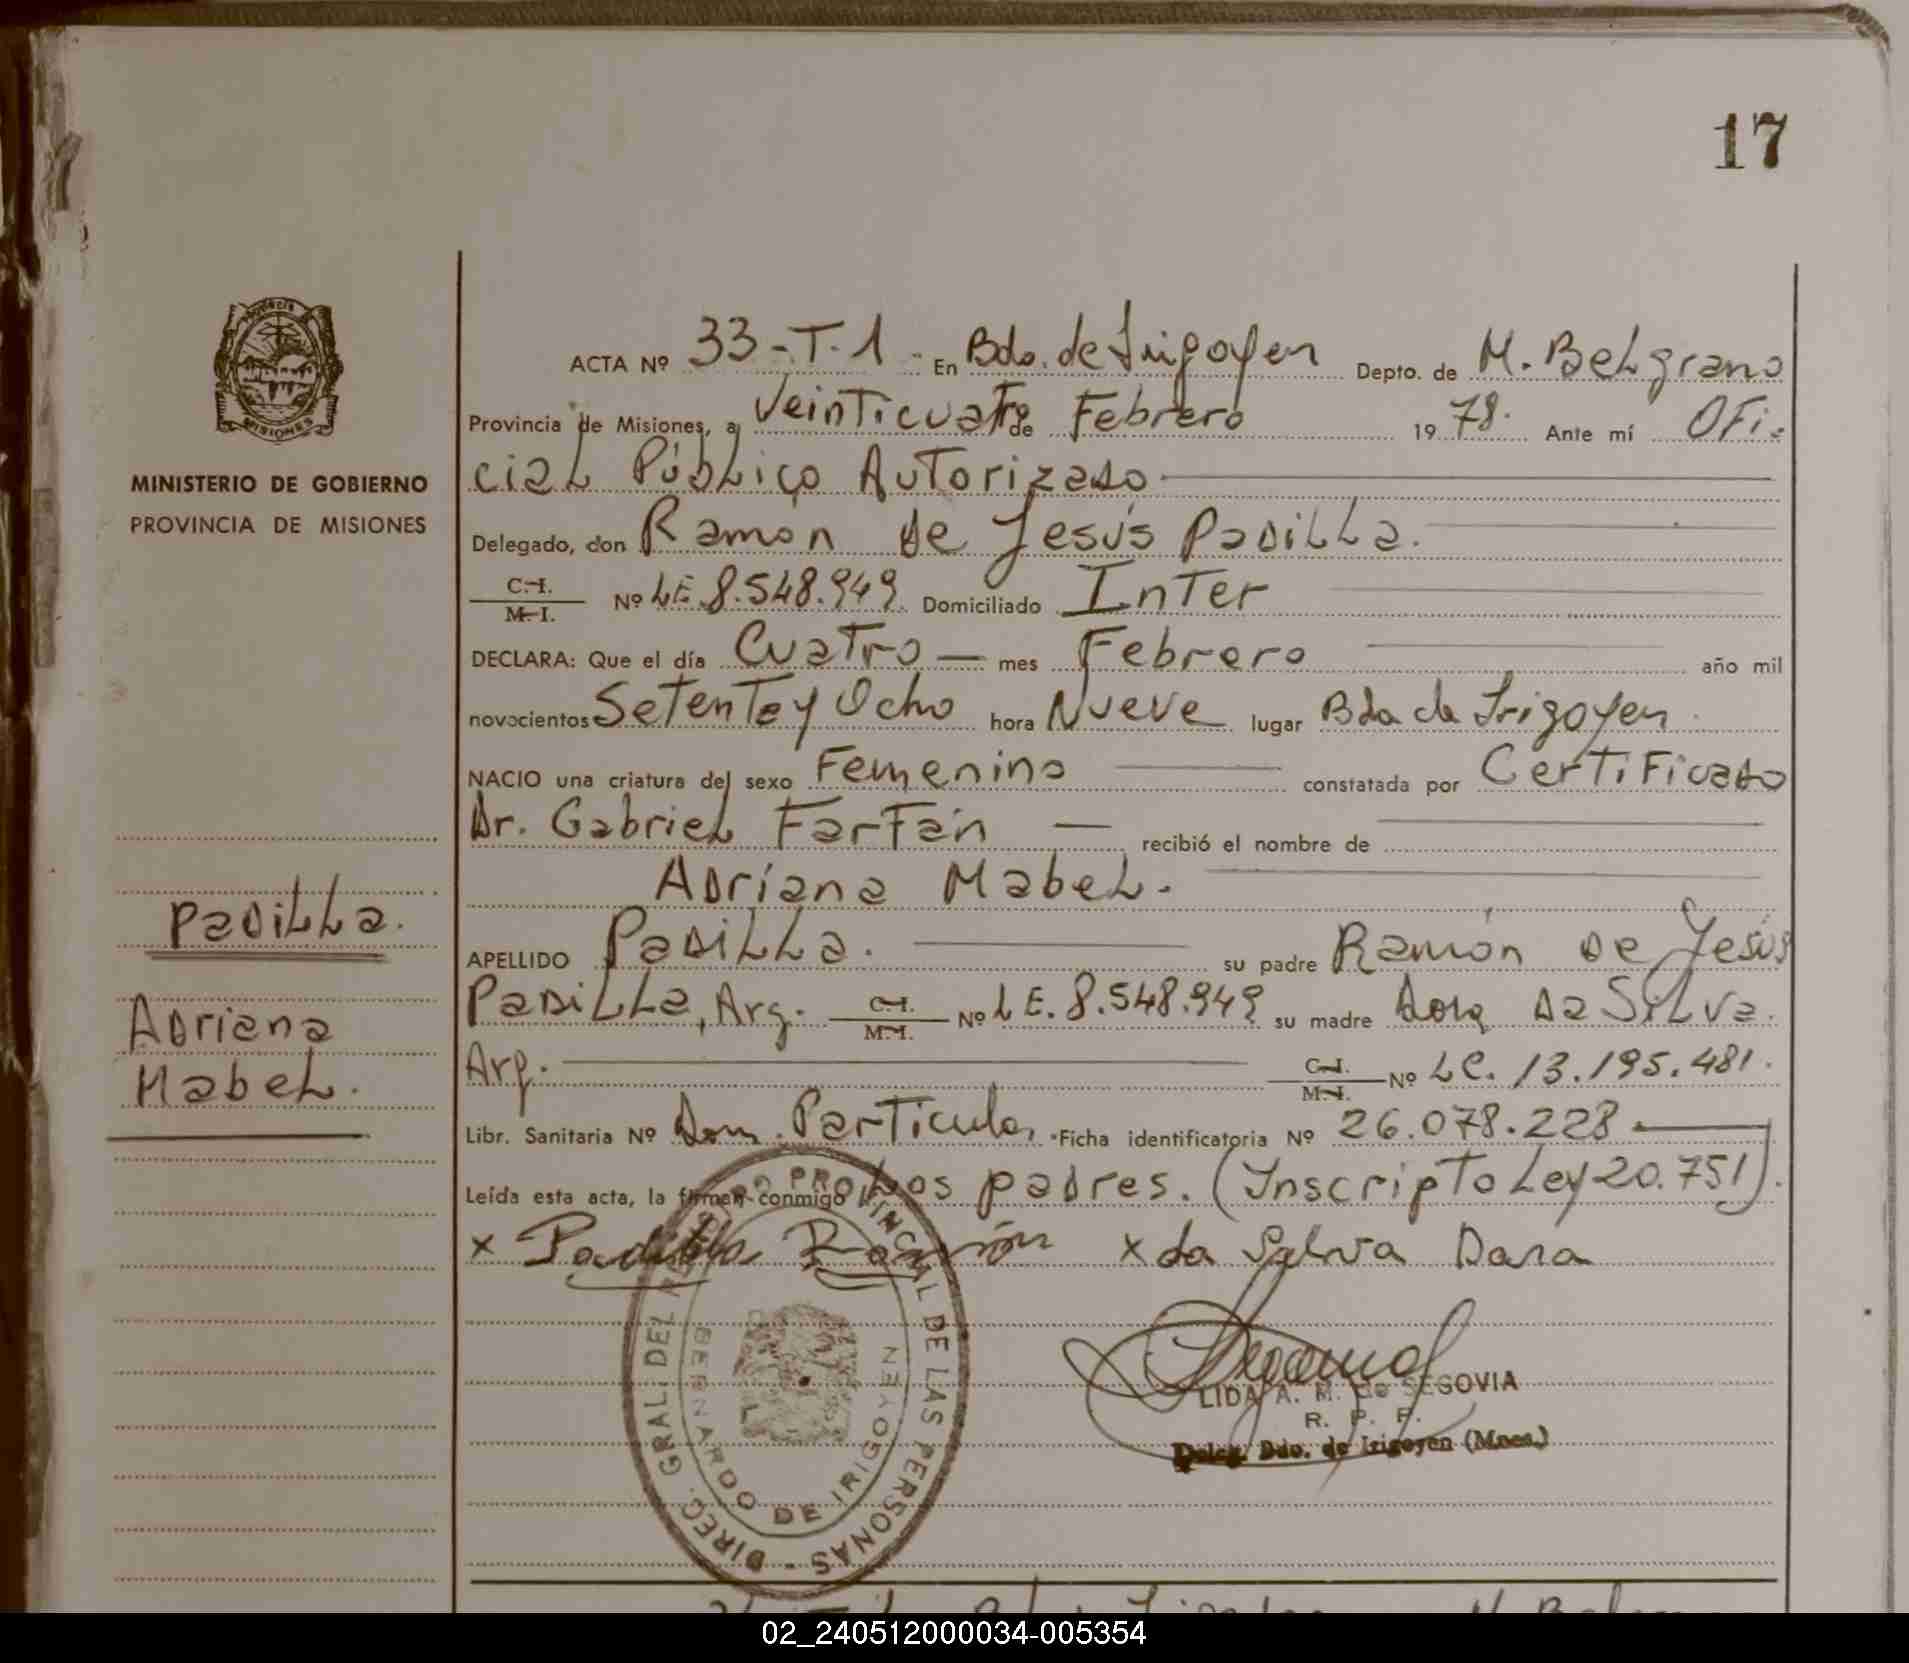 17
ACTA Nº 33-T.1. En Bdo. de Irigoyen Depto. de M. Belgrano
Provincia de Misiones, a Veinticuatro de Febrero 1978. Ante mí Ofi-
MINISTERIO DE GOBIERNO
PROVINCIA DE MISIONES
cial Público Autorizado
Delegado, don Ramón de Jesús Padilla.
C.I.
M.I. Nº LE.8.548.949 Domiciliado Inter
DECLARA: Que el día Cuatro — mes Febrero año mil
novecientos Setenta y Ocho hora Nueve lugar Bdo de Irigoyen.
NACIO una criatura del sexo Femenino constatada por Certificado
Dr. Gabriel Farfán — recibió el nombre de
Adriana Mabel.
PADILLA.
Adriana
Mabel.
APELLIDO Padilla. su padre Ramón de Jesús
Padilla, Arg. C.I. M.I. Nº LE. 8.548.949 su madre Dora Da Silva.
Arg. C.I. M.I. Nº LC. 13.195.481.
Libr. Sanitaria Nº Dom. Particular Ficha identificatoria Nº 26.078.228
Leída esta acta, la firman conmigo Los padres. (Inscripto Ley 20.751).
x Padilla Ramón x da Silva Dora
LIDA A. M. de SEGOVIA
R. P. P.
Deleg. Bdo. de Irigoyen (Mnes.)
DIREC. GRAL. DEL REGISTRO PROVINCIAL DE LAS PERSONAS -
BERNARDO DE IRIGOYEN
02_240512000034-005354